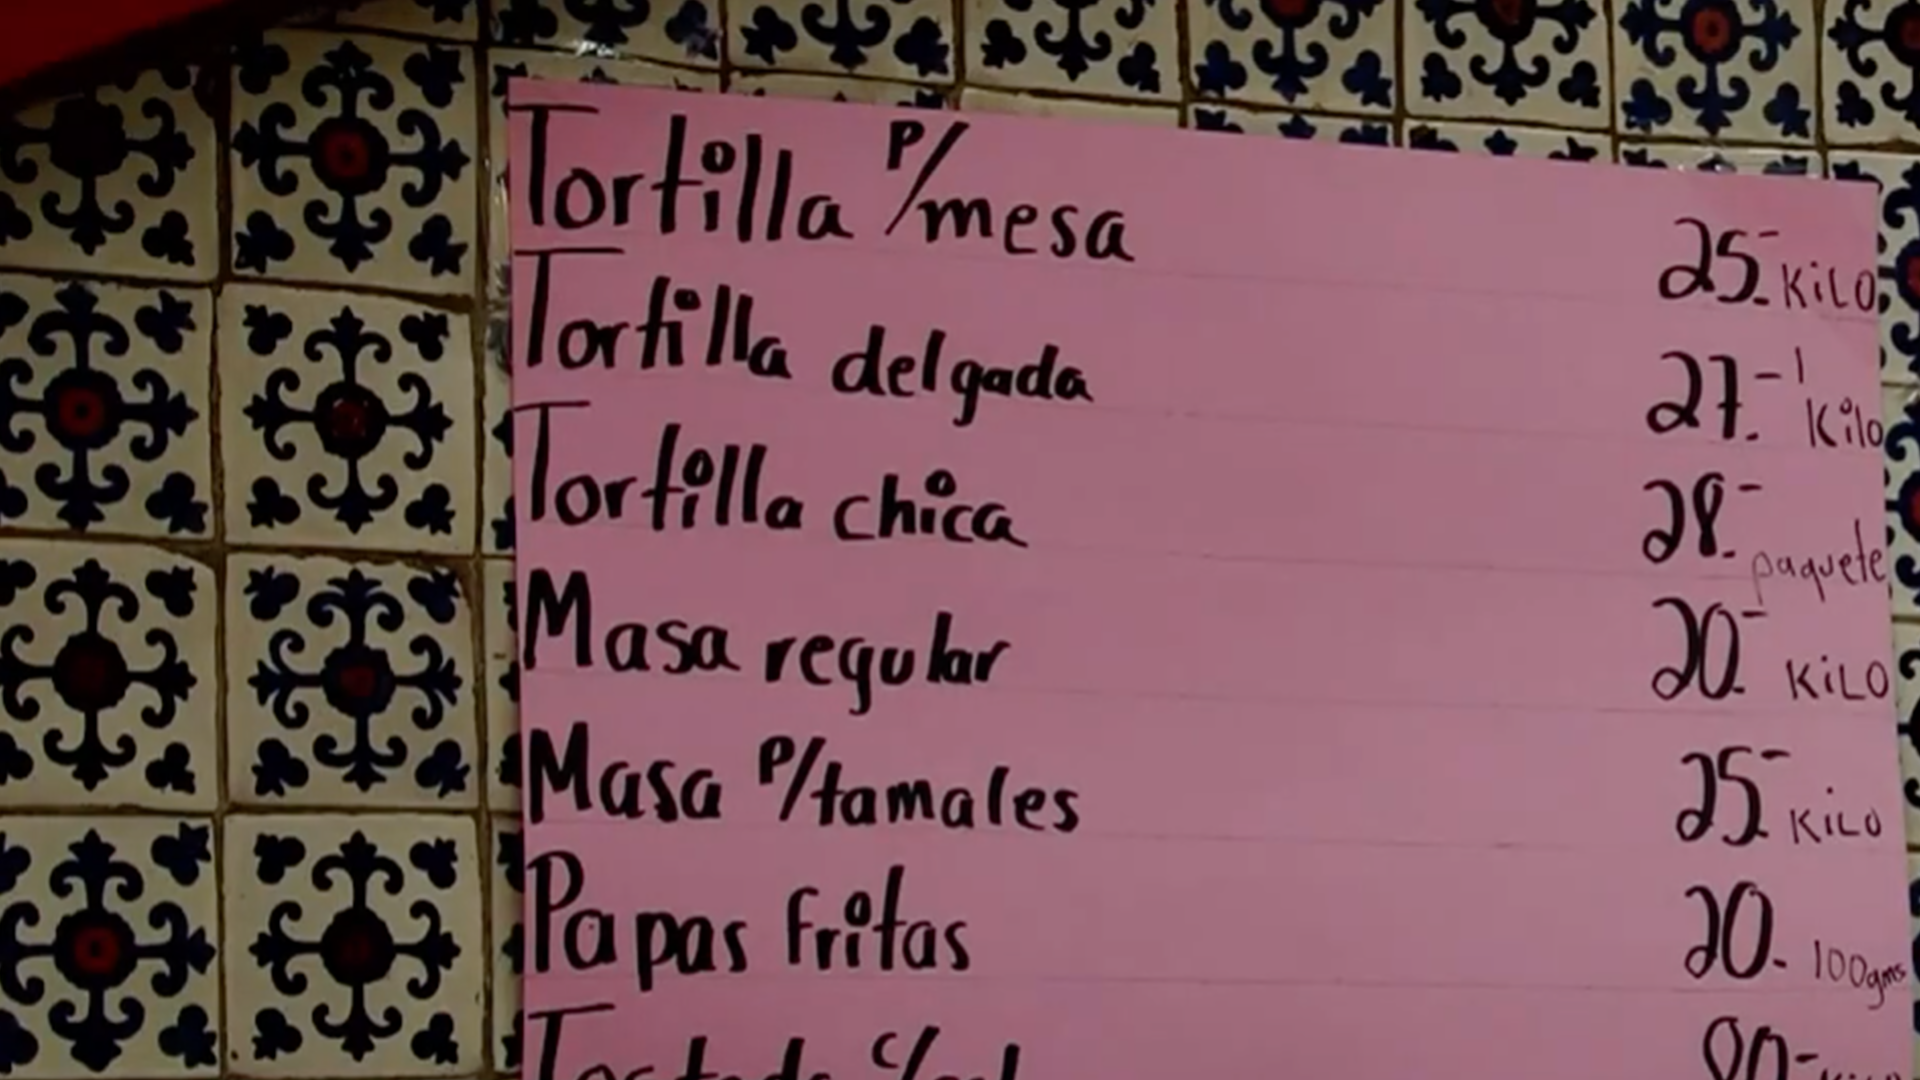 Tortilla P/mesa 25.- KiLO
Tortilla delgada 27.- 1 Kilo
Tortilla chica 28.- paquete
Masa regular 20.- KiLO
Masa P/tamales 25.- KiLO
Papas fritas 20.- 100gms